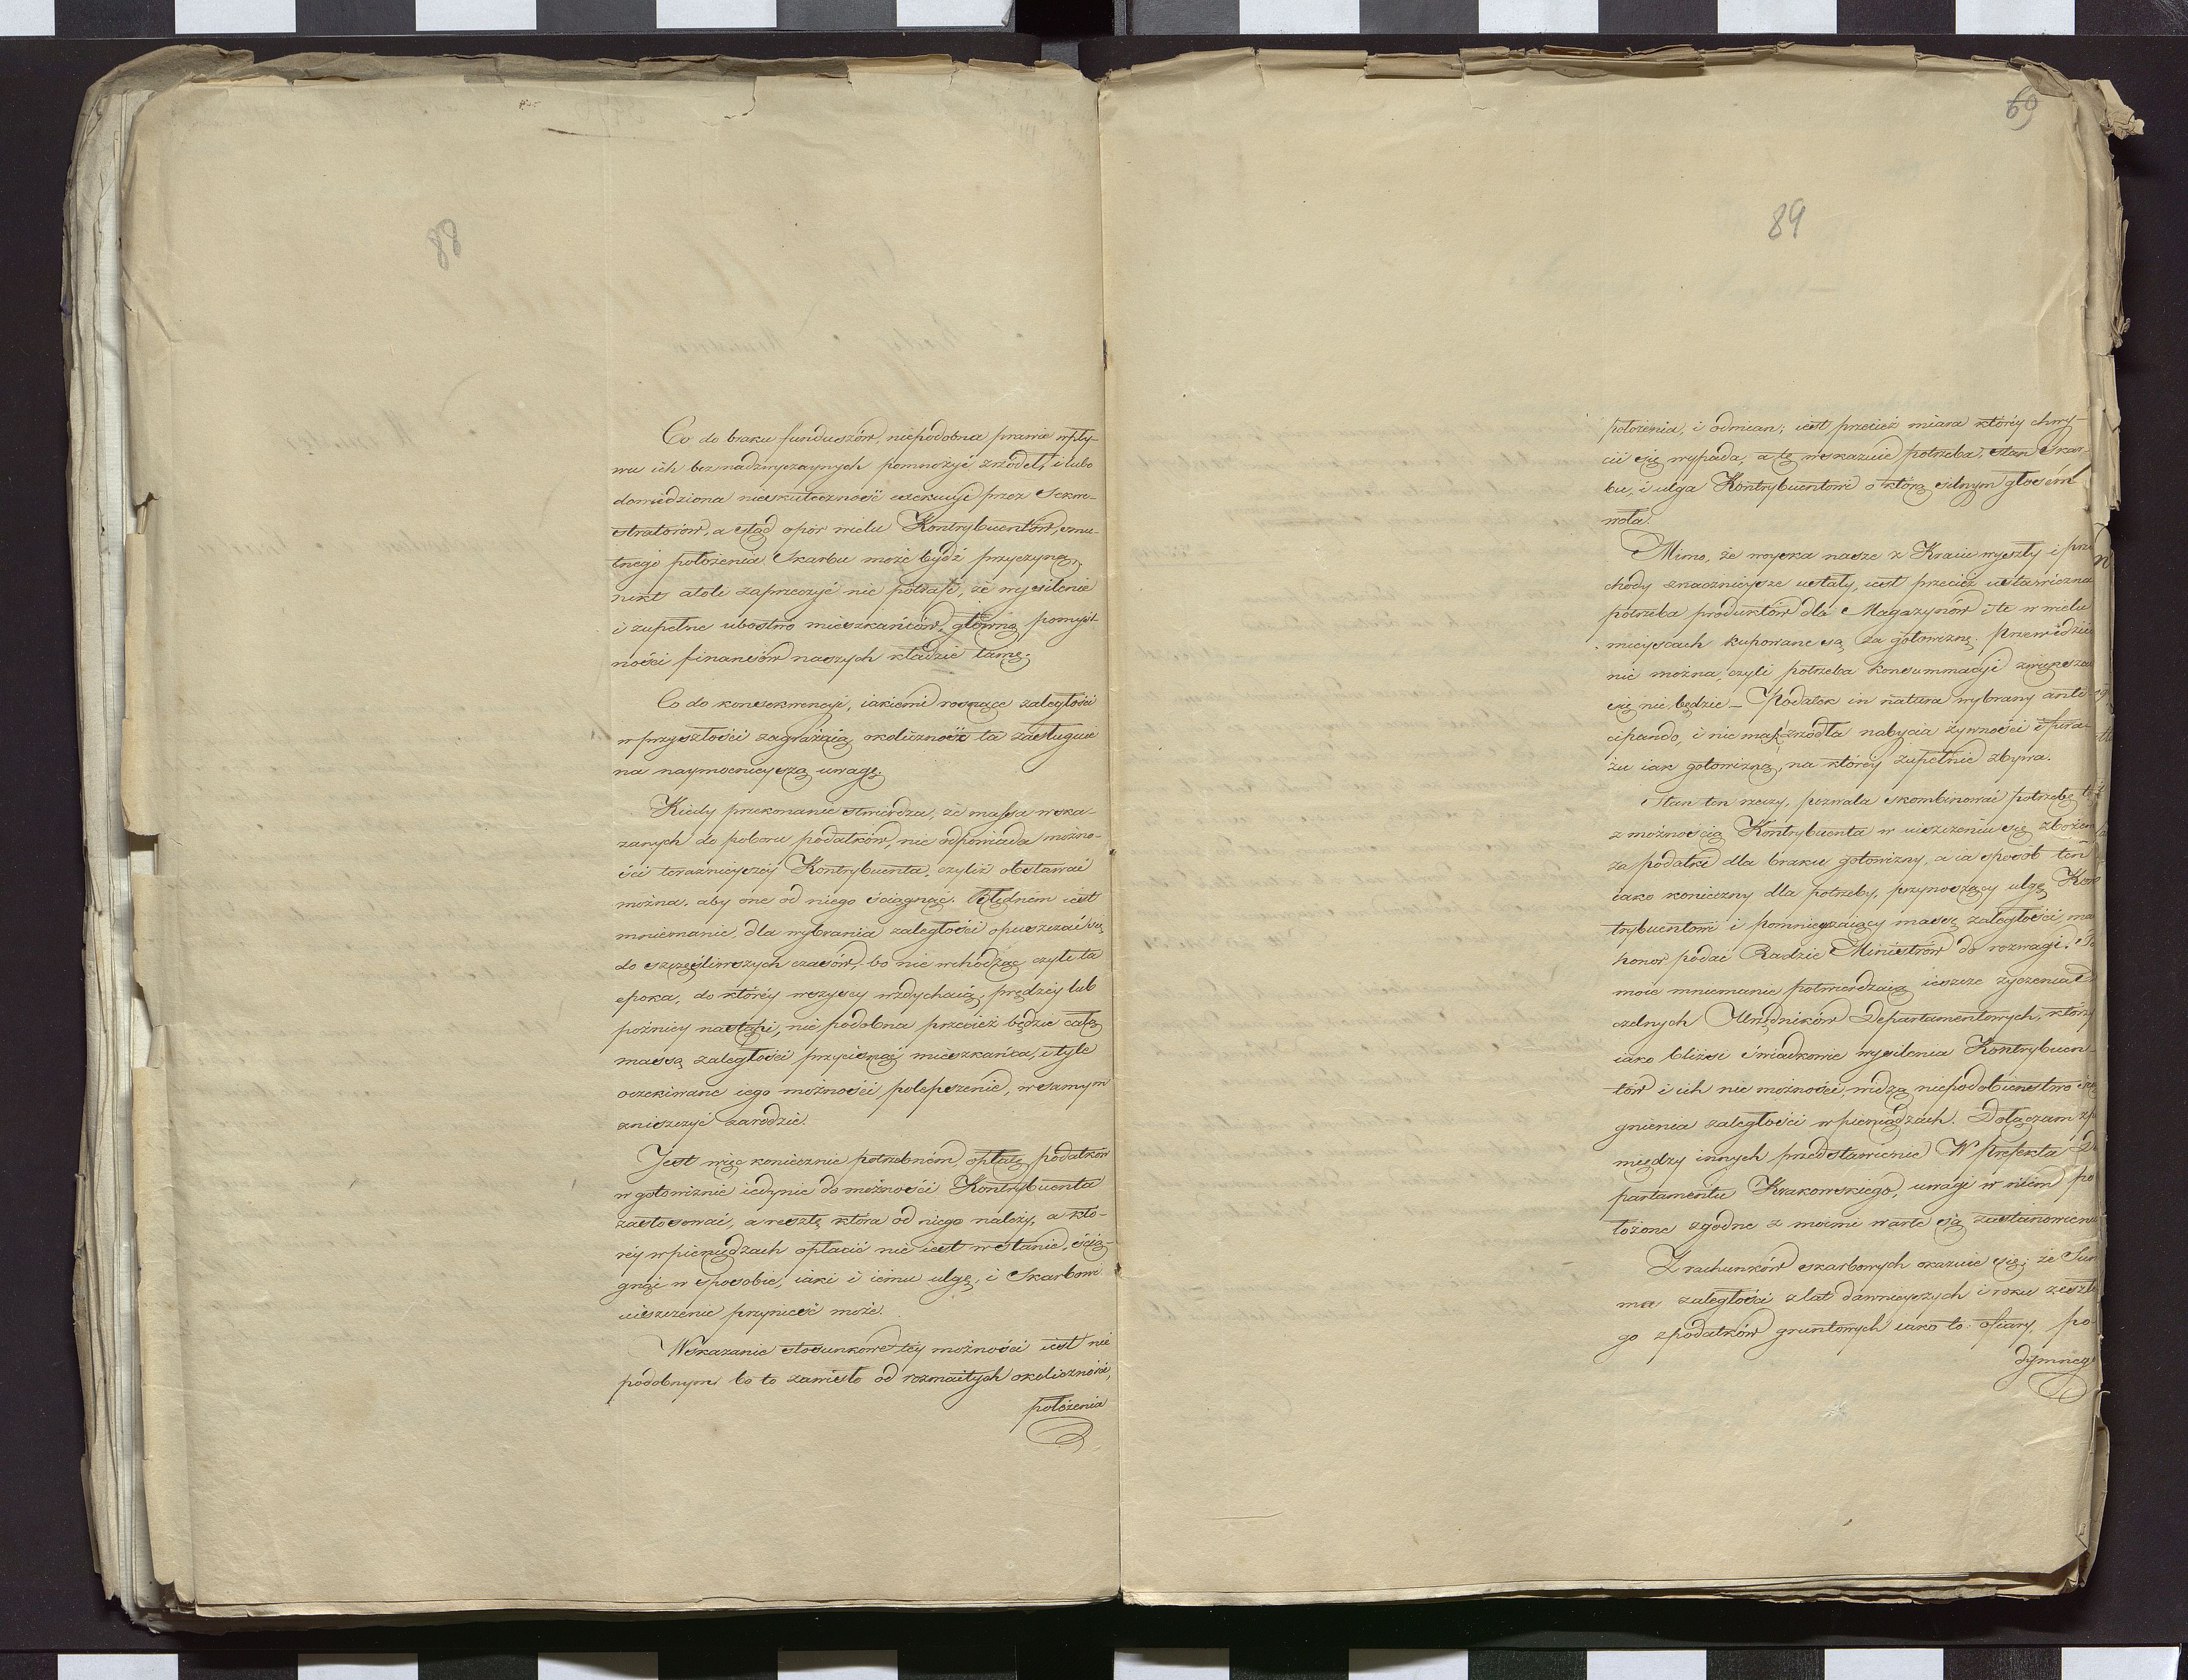 88
Co do braku funduszów, niepodobna prawie wpły-
wu ich bez nadzwyczaynych pomnożyć zrzódeł, i lubo
dowiedziona nieskuteczność exekucyi przez Sekwe-
stratorów, a stąd opór wielu Kontrybuentów, smu-
tnego położenia Skarbu może bydź przyczyną,
nikt atoli zaprzeczyć nie potrafi, że wysilenie
i zupełne ubóstwo mieszkańców, główną pomyśl
ności finansów naszych kładzie tamę.
Co do konsekwencyi, iakiemi rosnące zaległości
w przyszłości zagrażaią okoliczność ta zasługuie
na naymocnieyszą uwagę.
Kiedy przekonanie stwierdza, że massa wska-
zanych do poboru podatków, nie odpowiada możno-
ści teraznieyszéy Kontrybuenta, czyliż obstawać
można, aby one od niego ściągnąć. Błędnem iest
mniemanie, dla wybrania zaległości opuszczać się
do szczęśliwszych czasów, bo nie wchodząc czyli ta
epoka, do któréy wszyscy wzdychaią, prędzéy lub
poźniéy nastąpi, nie podobna przecież będzie całą
massą zaległości przycisnąć mieszkańca, i tyle
oczekiwane iego możności polepszenie, w samym
zniszczyć zarodzie.
Jest więc koniecznie potrzebném, opłatę podatków
w gotowiznie iedynie do możności Kontrybuenta
zastosować, a resztę która od niego należy, a któ-
réy w pieniądzach opłacić nie iest w stanie, ścią-
gnąć w sposobie, iaki i iemu ulgę, i Skarbowi
uiszczenie przynieść może.
Wskazanie stosunkowe téy możności iest nie
podobnym, bo to zawisło od rozmaitych okoliczności,
położenia
69
89
położenia, i odmian; iest przecież miara któréy chwy-
cić się wypada, a tę wskazuie potrzeba, stan Skar-
bu, i ulga Kontrybuentowi o którą silnym głosem
woła.
Mimo, że woyska nasze z Kraiu wyszły i prze
chody znacznieysze ustały, iest przecież ustawiczna
potrzeba produktów dla Magazynów i te w wielu
mieyscach kupowane są za gotowiznę. Przewidzieć
nie można, czyli potrzeba konsummacyi zwiększać
się nie będzie – Podatek in natura wybrany anti-
cipando, i nie masz zrzódła nabycia żywności i fura-
żu iak gotowizną, na któréy zupełnie zbywa.
Stan ten rzeczy, pozwala skombinować potrzebę tę
z możnością Kontrybuenta w uiszczeniu się zbożem
za podatki dla braku gotowizny, a ia sposób ten
iako konieczny dla potrzeby, przynoszący ulgę Kon
trybuentowi i pomnieyszaiący massę zaległości ma
honor podać Radzie Ministrów do rozwagi.
moie mniemanie potwierdzaią ieszcze życzenia
czelnych Urzędników Departamentowych, którzy
iako bliżsi świadkowie wysilenia Kontrybuen-
tów i ich nie możności, widzą niepodobieństwo ścią
gnienia zaległości w pieniądzach. Dołączam z po
między innych przedstawienie W. Prefekta De
partamentu Krakowskiego, uwagi w niem po
łożone zgodne z moimi warte są zastanowienia
Z rachunków skarbowych okazuie się, że Sum
ma zaległości z lat dawnieyszych i roku zeszłe
go z podatków gruntowych iako to: ofiary, po-
dymnego